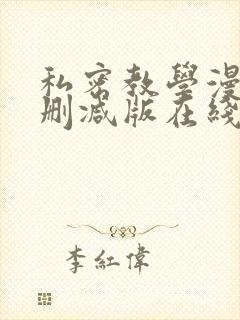 私密教學漫
删减版在綫
李紅偉